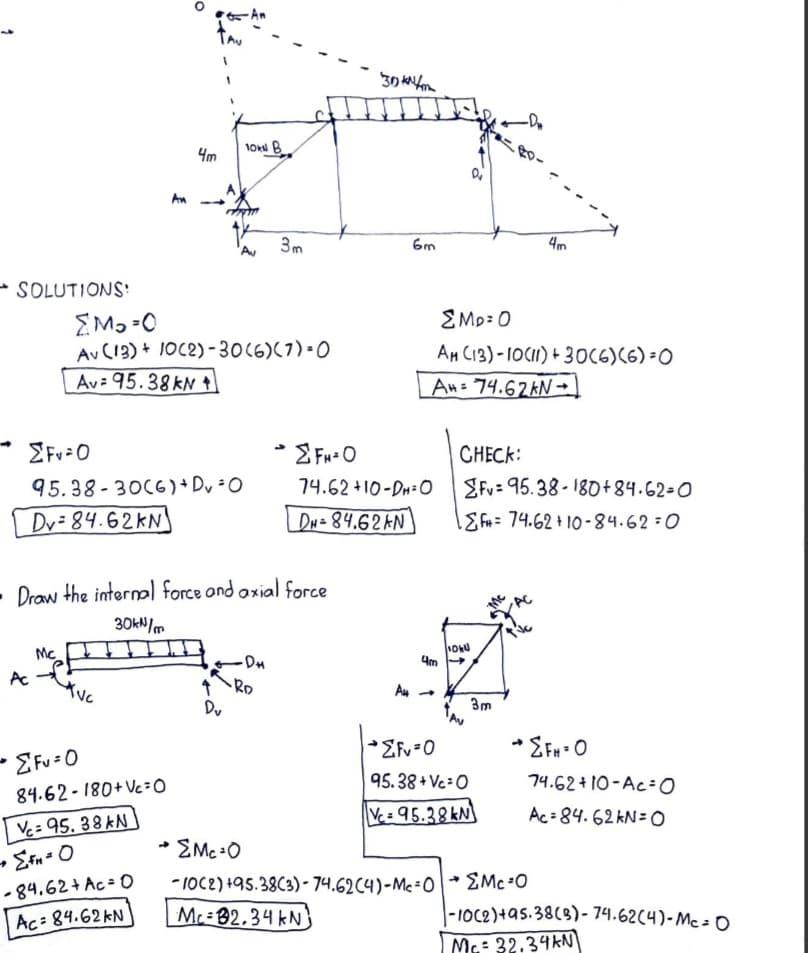 O
AH
AV
30 kN/m
C
D
DH
10kN B
4m
RD
DV
A
AH
AV
3m
6m
4m
SOLUTIONS:
ΣMO=0
AV(13) + 10(2)-30(6)(7)=0
AV= 95.38kN ↑
ΣMD=0
AH(13)-10(11)+30(6)(6)=0
AH= 74.62kN→
→ ΣFV=0
95.38-30(6)+DV=0
DV=84.62kN
→ ΣFH=0
74.62+10-DH=0
DH=84.62kN
CHECK:
ΣFV= 95.38-180+84.62=0
ΣFH= 74.62+10-84.62=0
Draw the internal force and axial force
30kN/m
MC
AC
VC
DH
RD
DV
MC
AC
VC
10kN
4m
AH
3m
AV
ΣFV=0
84.62-180+VC=0
VC=95.38kN
ΣFH=0
-84.62+AC=0
AC=84.62kN
→ ΣMC=0
-10(2)+95.38(3)-74.62(4)-MC=0
MC=32.34kN
→ΣFV=0
95.38+VC=0
VC=95.38kN
→ΣFH=0
74.62+10-AC=0
AC=84.62kN=0
→ ΣMC=0
-10(2)+95.38(3)-74.62(4)-MC=0
MC=32.34kN